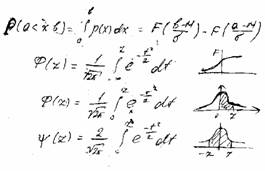 P(a<x<b) = ∫_a^b p(x)dx = F((b-M)/σ) - F((a-M)/σ)
Φ(z) = 1/√2π ∫_{-∞}^z e^{-t²/2} dt F
φ(z) = 1/√2π ∫_0^z e^{-t²/2} dt 0 z
ψ(z) = 2/√2π ∫_0^z e^{-t²/2} dt -z z